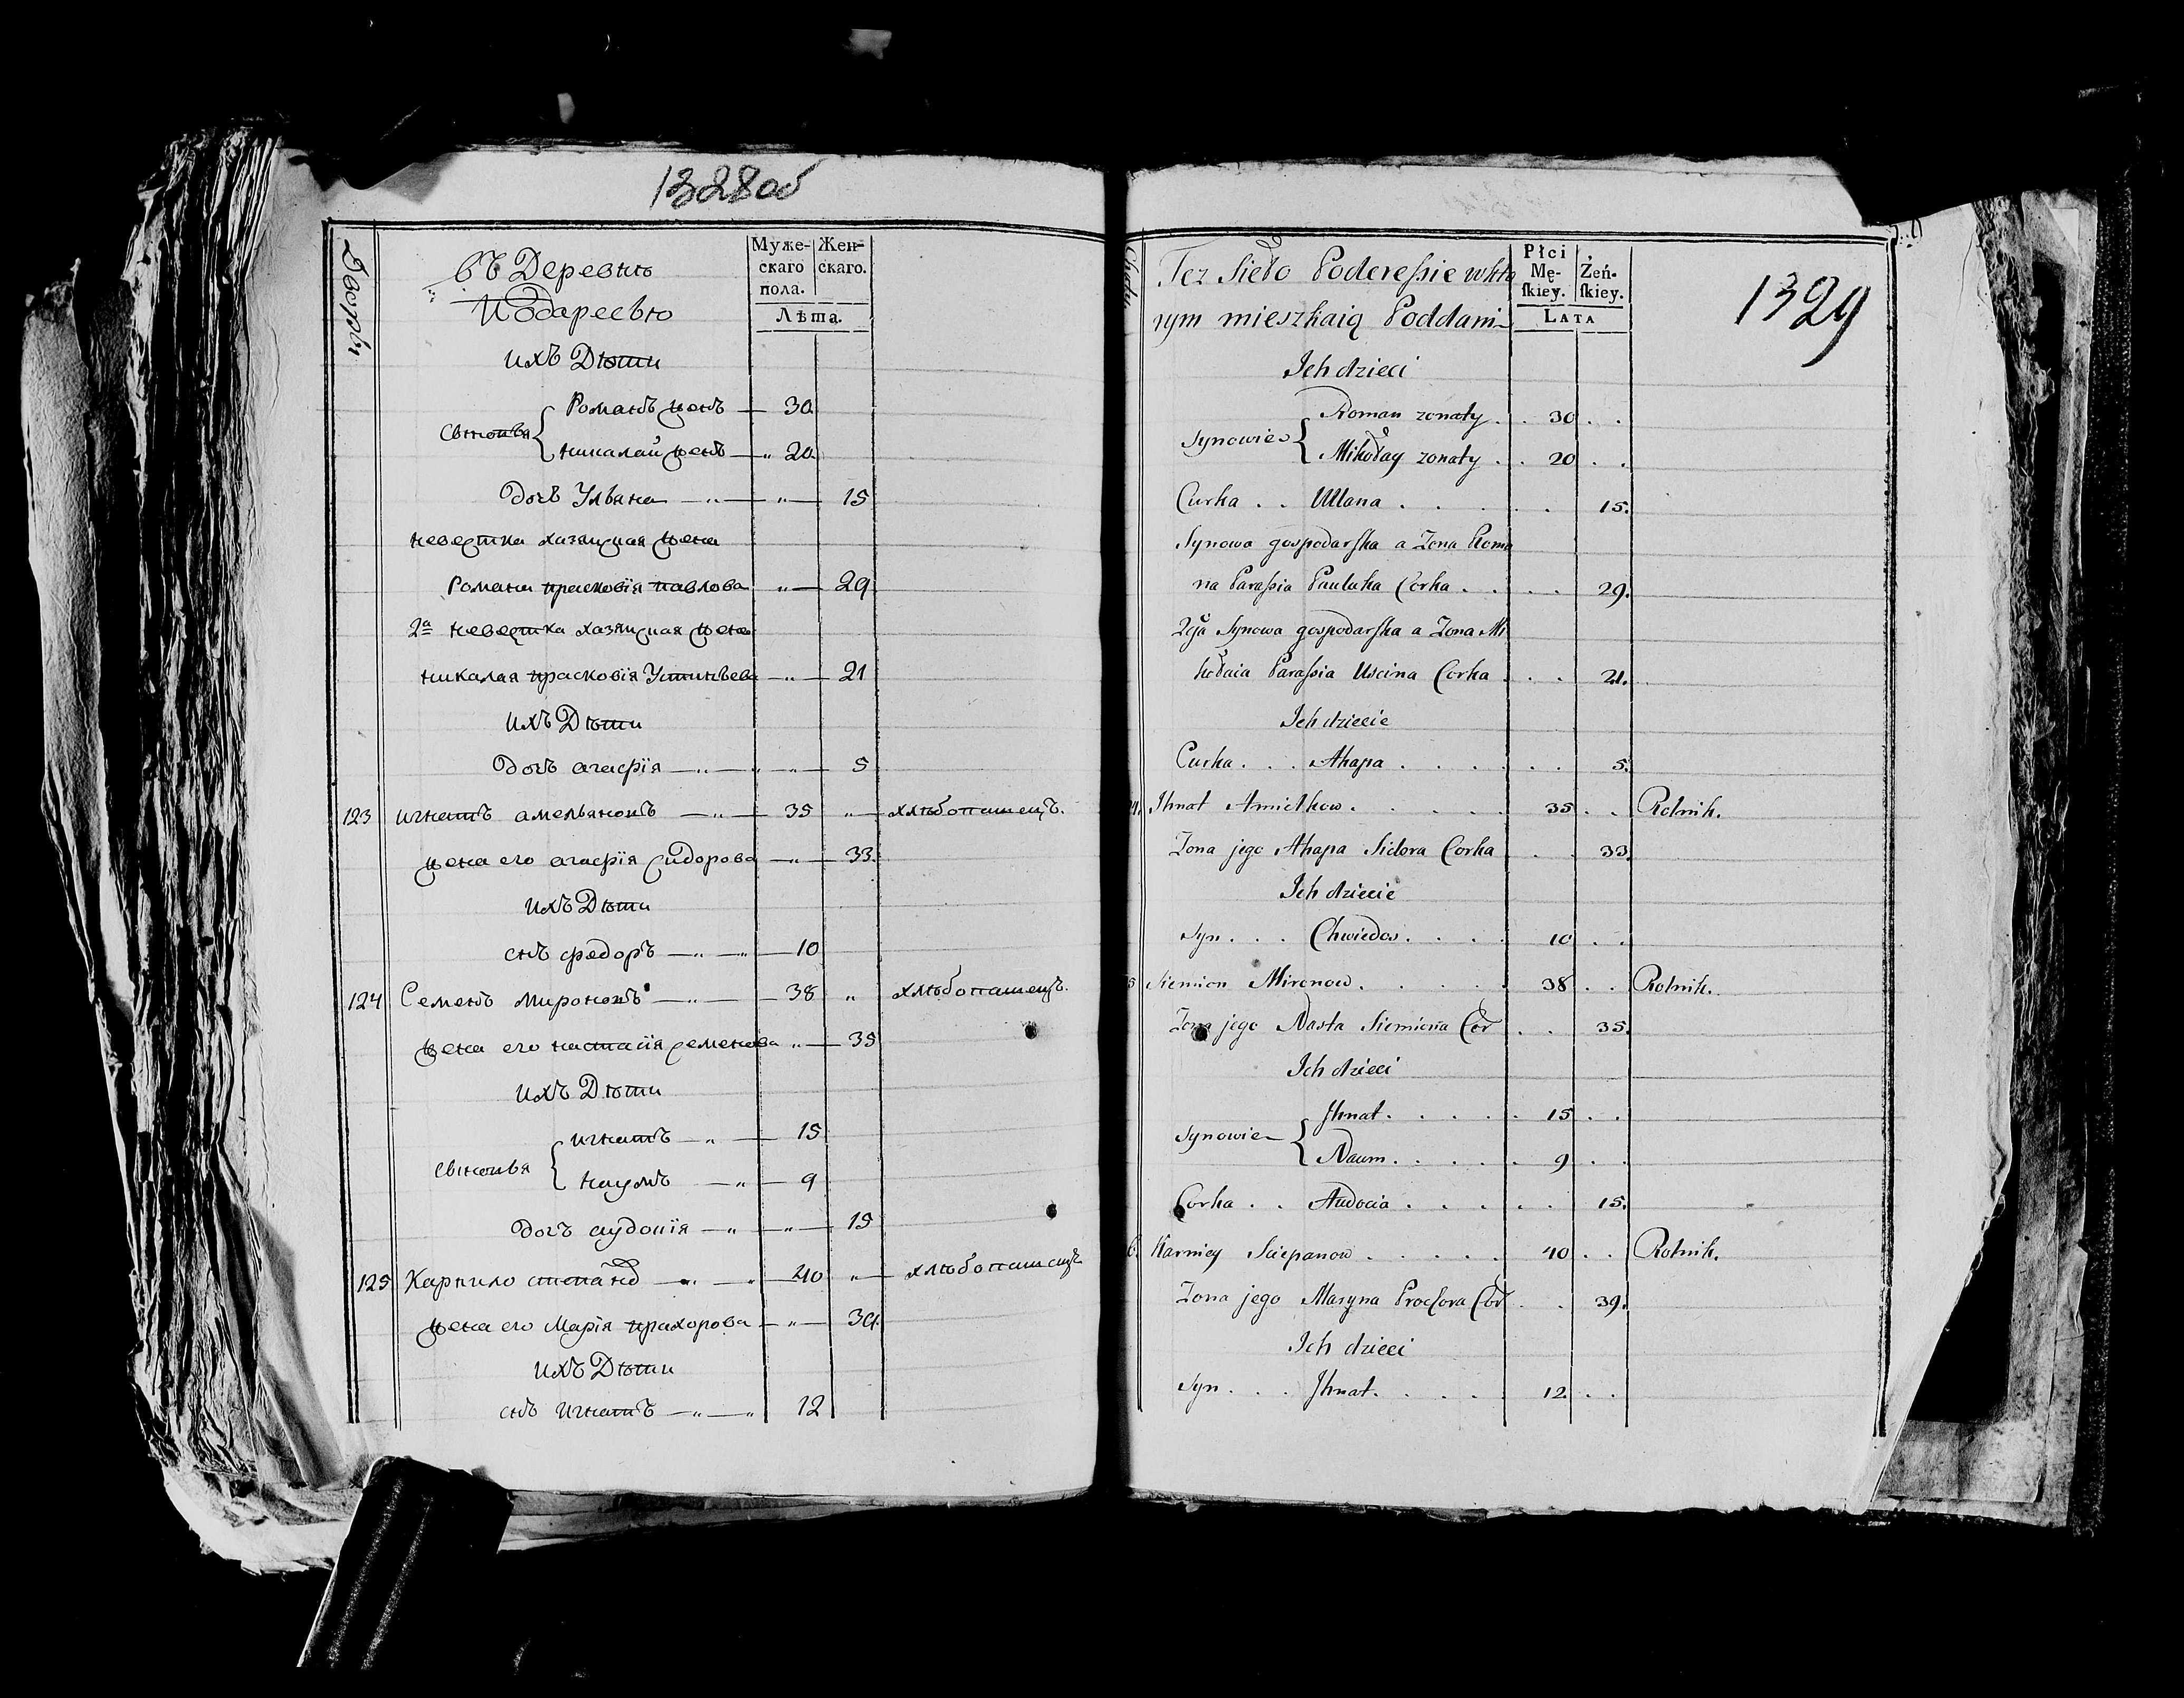 1328 об
Дворы
въ Деревню
Подаресью
Муже-
скаго
пола.
Жен-
скаго.
Лѣта.
ихъ Дѣти
Романъ жен̃ъ — 30
Сыновья
николай жен̃ъ — " 20
дочъ Ульяна — " — " — 15
невестка хазяиская жена
Романа прасковія павлова " — 29
2а невестка хазяиская жена
николая прасковія Устиньева — " — 21
ихъ Дѣти
дочъ агафія — " — " — 5
123 игнатъ амельяновъ — " — 35 " — хлѣбопашецъ.
жена его агафія сидорова — " — 33
ихъ Дѣти
сн̃ъ федоръ — " — " — 10
124 Семенъ мироновъ — " — 38 " хлѣбопашецъ.
жена его настасія семенова " — 35
ихъ Дѣти
игнатъ — " — 15
сыновья
наумъ — " — 9
дочъ аудокія — " — " — 15
125 Карпило степанов — " — 40 " — хлѣбопашецъ
жена его Марія прахорова — " — 39
ихъ Дѣти
сн̃ъ игнатъ — " — " 12
1329
Też Sieło Poderessie w któ
rym mieszkaią Poddani
Płci
Mę-
skiey.
Żeń-
skiey.
LATA
Ich dzieci
Roman zonaty . . 30 . .
Synowie
Mikołay zonaty . . 20 . .
Curka . . Ullana . . . . . . 15.
Synowa gospodarska a Zona Roma
na Parassia Pauluka Corka . . . . 29.
2ga Synowa gospodarska a Zona Mi
kołaia Parassia Uscina Corka . . . 21.
Ich dziecie
Curka . . . Ahapa . . . . . . 5.
Ihnat Amielkow . . . . . 35 . . Rolnik.
Zona jego Ahapa Sidora Corka . . 33.
Ich dziecie
Syn . . . Chwiedor . . . . 10 . .
Siemion Mironow . . . . . 38 . . Rolnik.
Zona jego Nasta Siemiona Cor . . 35.
Ich dzieci
Ihnat . . . . . 15 . .
Synowie
Naum . . . . . 9 . .
Corka . . Audocia . . . . . . 15.
Karniey Sciepanow . . . . . 40 . . Rolnik.
Zona jego Maryna Prochora Cor . . 39.
Ich dzieci
Syn . . . Ihnat . . . . . 12 . .